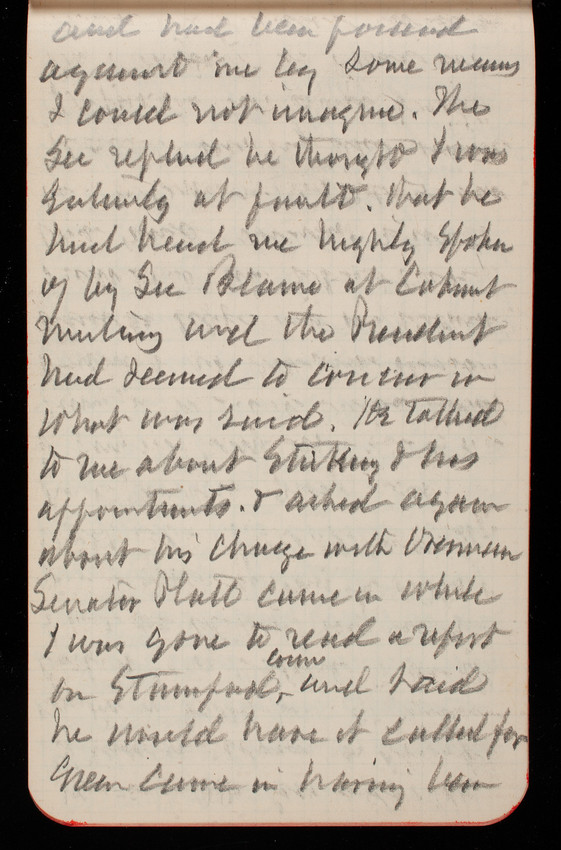 and had been poisoned
against me by some means
I could not imagine. The
Sec replied he thought I was
entirely at fault. that he
had heard me highly spoken
of by Sec Blaine at Cabinet
meeting and the President
had seemed to concur in
what was said. He talked
to me about & his
appointments. & asked again
about his charge with
Senator Platt came in while
I was gone to read a report
on Stamford, Conn and said
he would have it called for
Green came in having been